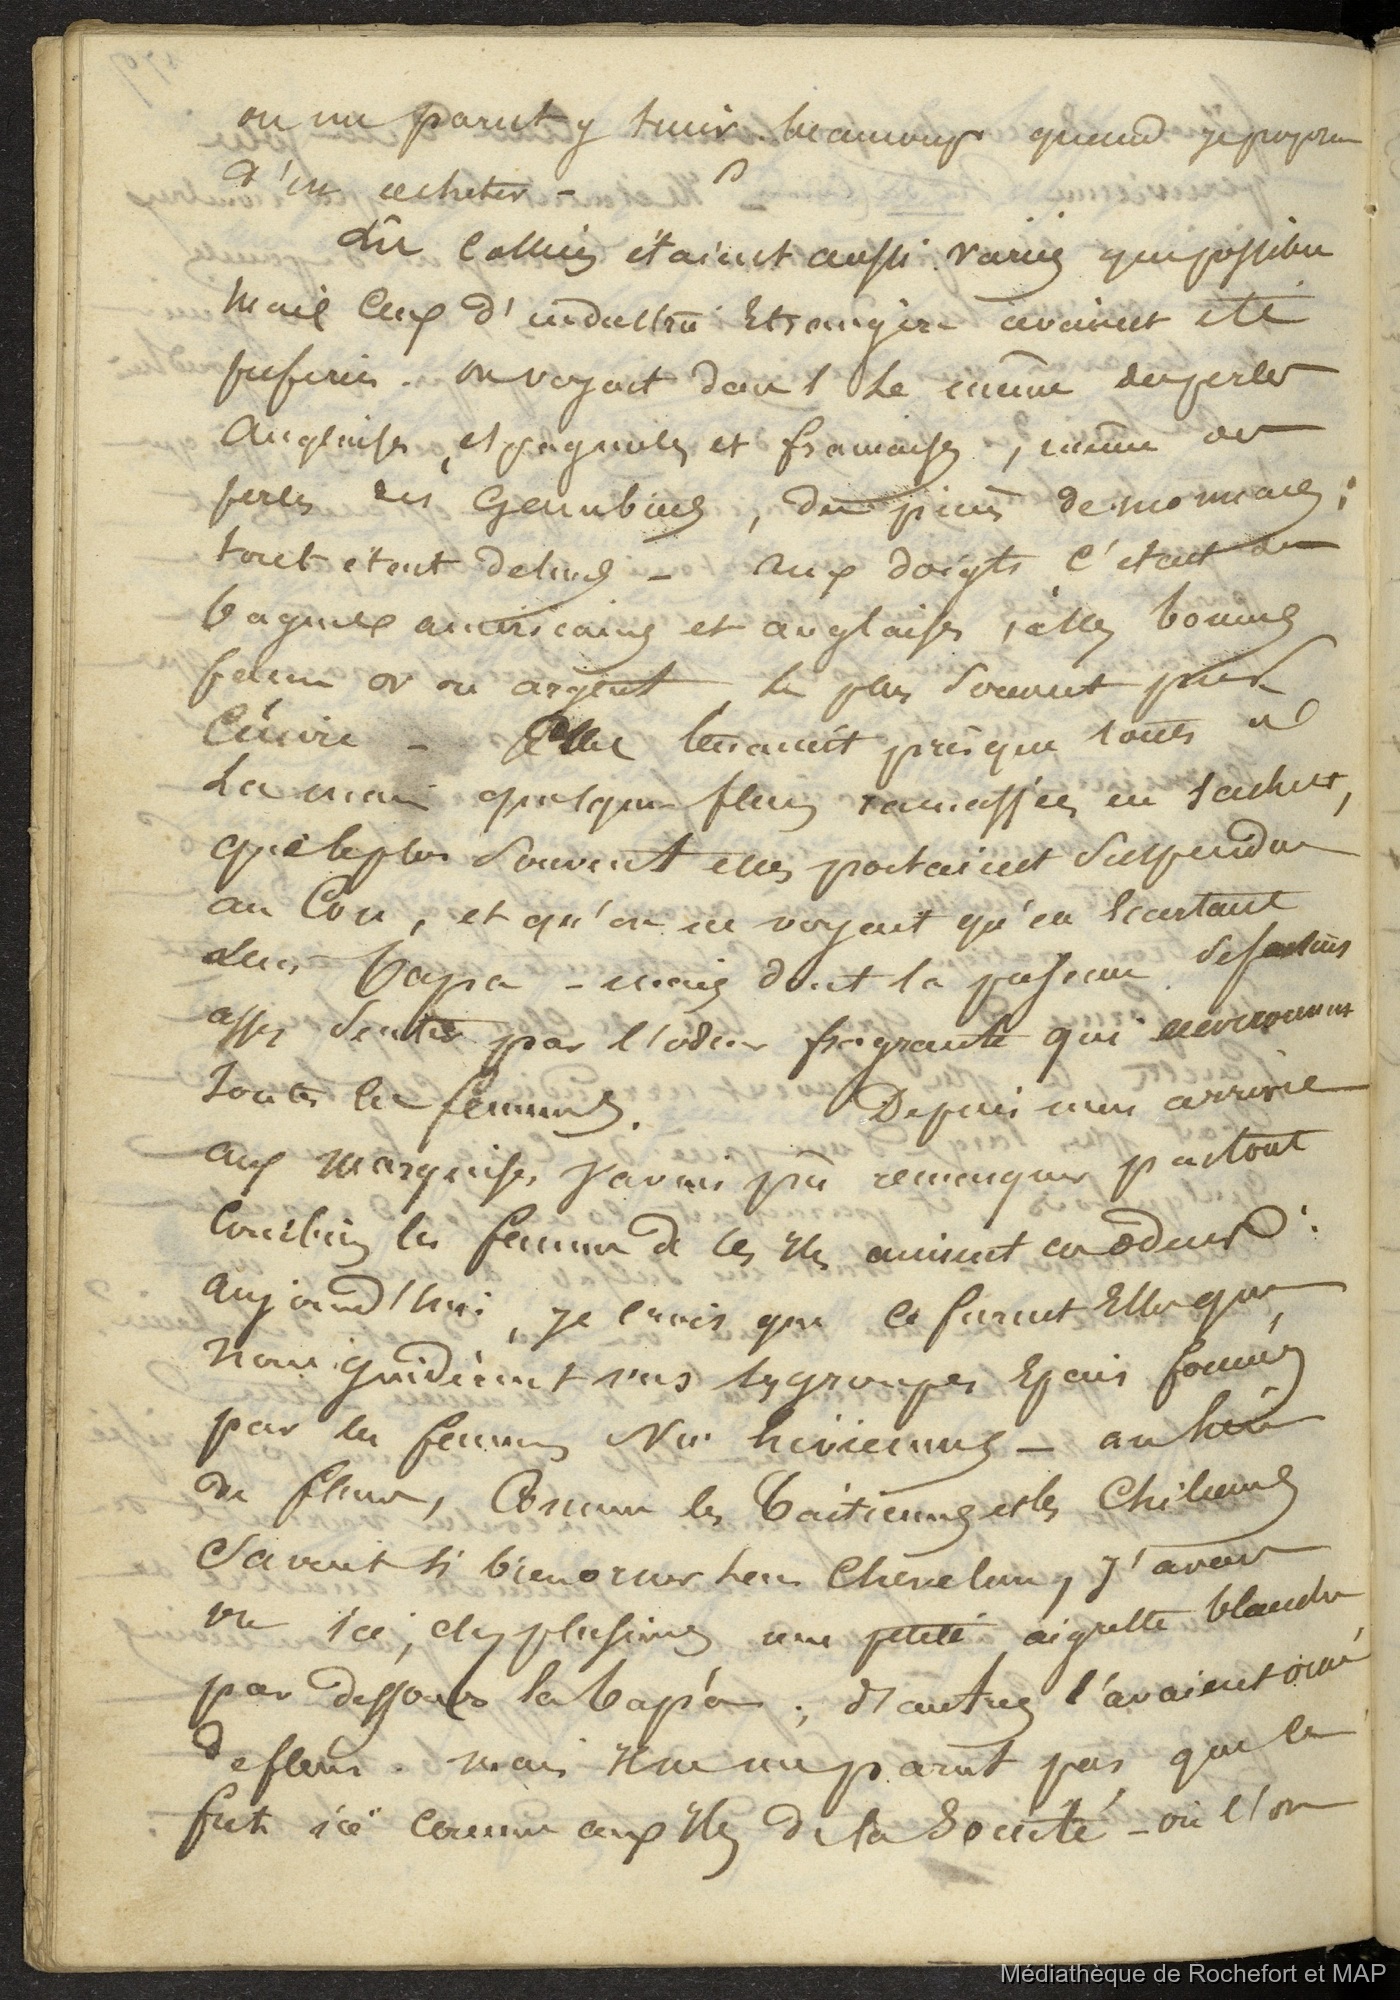 on me parut y tenir beaucoup quand je proposai
d'en acheter -
Les Colliers étaient aussi variés que possible
mais Ceux d'industrie Etrangère avaient été
préférés. on voyait dans le même des perles
anglaises, espagnoles et françaises, même des
perles des Gambiers, des pièces de monnaies;
tout était dehors - aux doigts c'était des
bagues américaines et anglaises,
or ou argent le plus souvent
Cuivre - Elles tenaient presque toutes à
la main quelques fleurs ramassées en sachets,
que le plus souvent elles portaient suspendu
au Cou, et qu'on ne voyait qu'en écartant
leur tapa - mais dont la présence se faisait
assez sentir par l'odeur fragrante qui environnait
toutes les femmes. Depuis mon arrivée
aux Marquises, j'avais pû remarquer partout
Combien les femmes de ces îles aiment ces odeurs:
aujourd'hui, je crois que ce furent Elles qui,
nous guidèrent vers les groupes Epais formés
par les femmes Nou hiviennes - au lieu
de fleurs, Comme les taitiennes et les Chiliennes
Savent si bien orner leur Chevelure, j'avais
vu ici, chez plusieurs une petite aigrette blanche
par dessous la tapa; d'autres l'avaient orné
de fleurs. mais il ne me parut pas que ce
fut ici comme aux îles de la Société - où l'on
Médiathèque de Rochefort et MAP